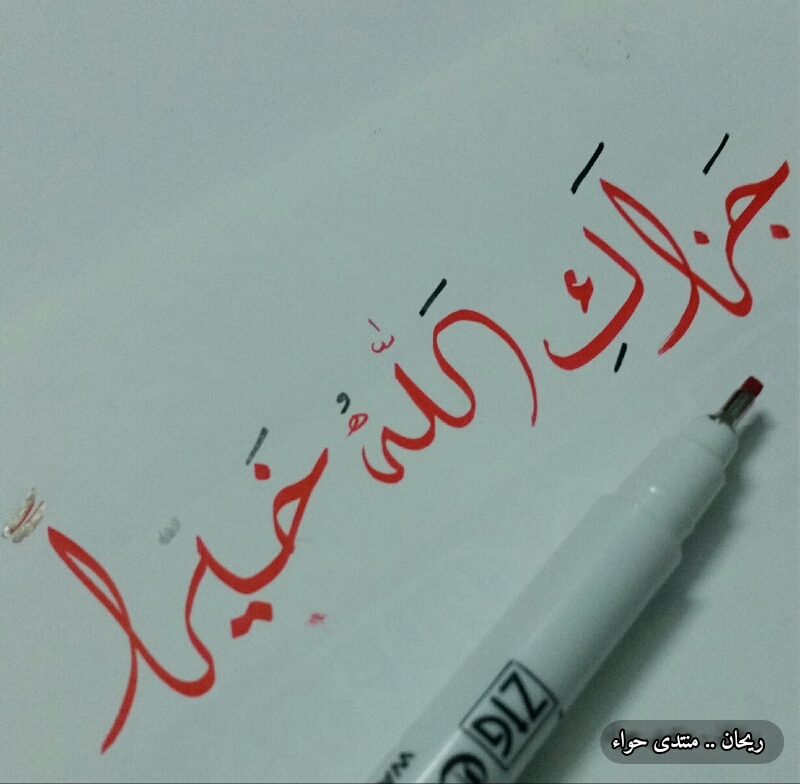 جَزَاكِ اللَّهُ خَيراً
ZIG
ريحان .. منتدى حواء